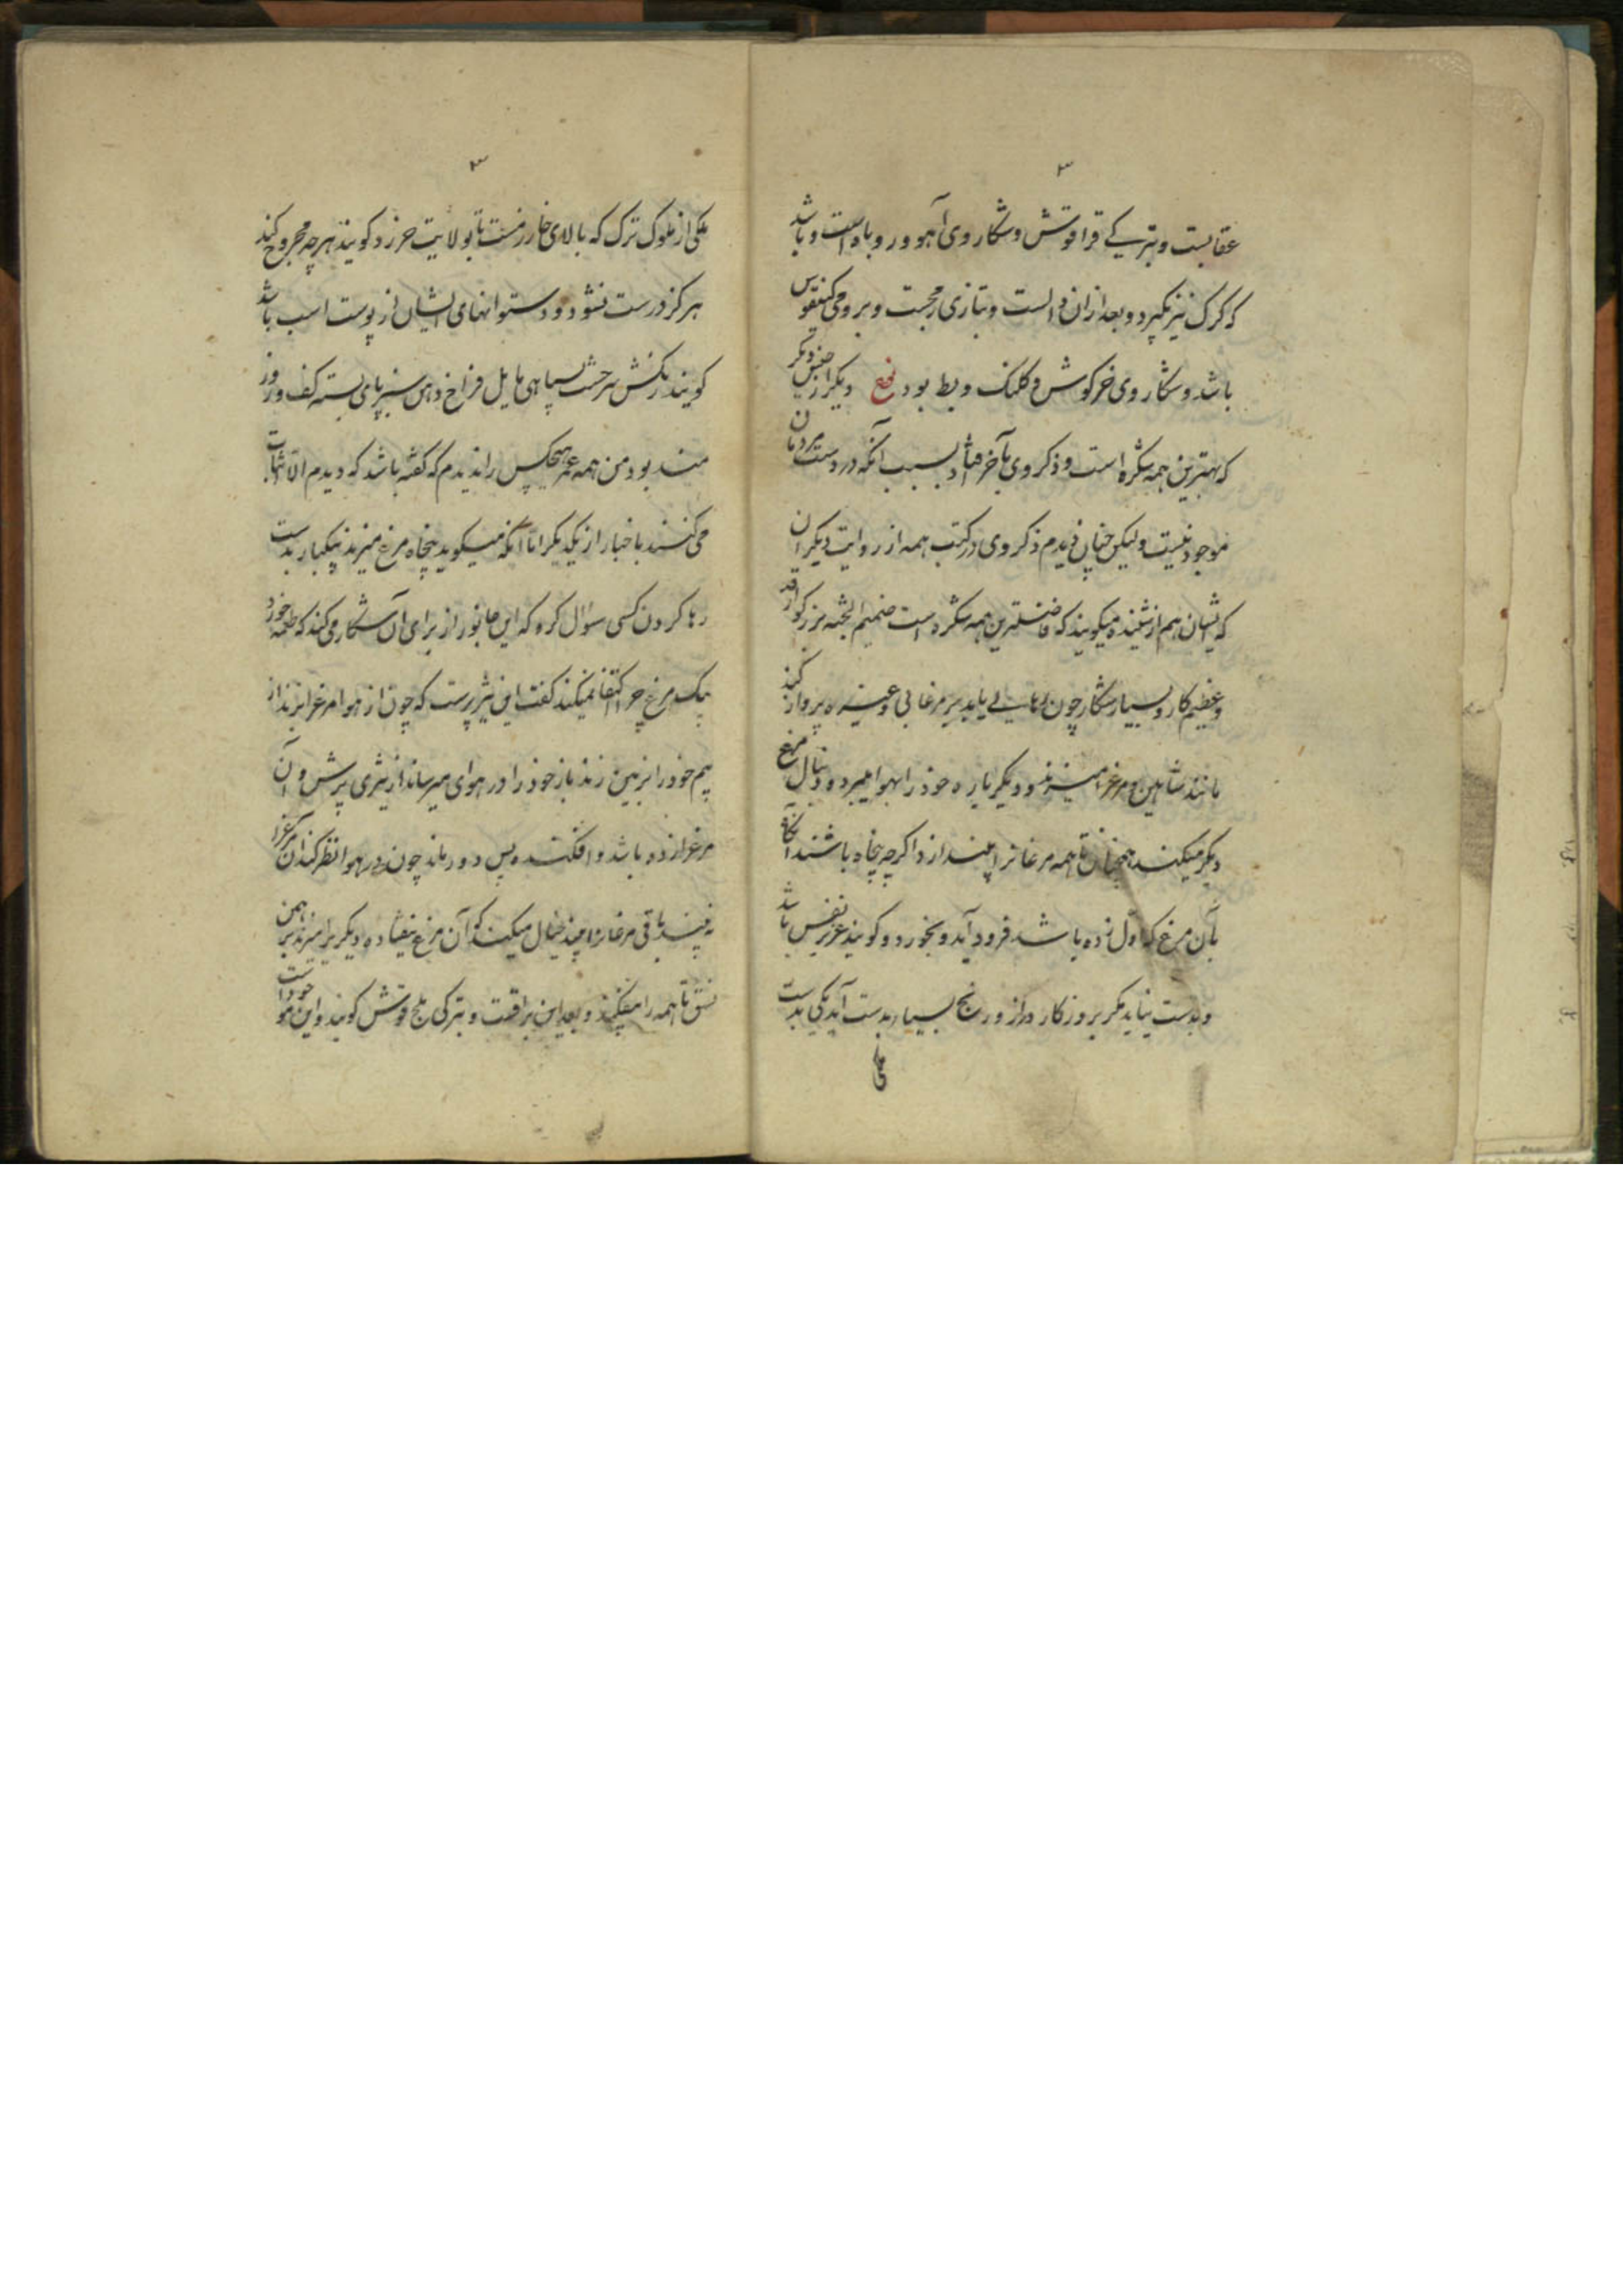 ۳
عقابست و بترکی قراقوش و شکار وی آهو و روباه است و باشد
که گرگ نیز بگیرد و بعد ازان دالست و بتازی زمجست و برومی کنیقوس
باشد و شکار وی خرگوش و کلنک و بط بود نوع دیگر از جنس دیگر
که بهترین همه شکره است و ذکر وی بآخر فتاد بسبب آنکه در دست مردمان
موجود نیست ولیکن چنان دیدم ذکر وی در کتب همه از روایت دیگران
که ایشان هم از شنیده میگویند که فاضلترین همه شکره است ضخیم الجثه بزرگوار قد
و عظیم کار و بسیار شکار چون رها یابد بر مرغابی و غیره پرواز کند
مانند شاهین و مرغ را میزند و دیگر باره خود را بهوا میبرد و دنبال مرغ
دیگر میکند همچنان تا همه مرغانرا بیندازد اگرچه پنجاه باشند آنگاه
بآن مرغ که اول زده باشد فرود آید و بخورد و گویند عزیز نفس باشد
و بدست نیاید مگر بروزگار دراز و رنج بسیار بدست آید یکی بدست
ملکی
۳
ملکی از ملوک ترک که بالای خارزمست تا بولایت خرز و گویند هرچه مجروح کند
هرگز درست نشود و دستوانهای ایشان از پوست اسب باشد
گویند رنگش سرخست بسیاهی مایل فراخ دهن سبز پای بسته کف و زور
مند بود من همه عمر هیچکس را ندیدم که گفته باشد که دیدم الا اثبات
می کنند باخبار از یکدیگر اما آنکه میگوید پنجاه مرغ میزند بیکبار بدست
رها کردن کسی سوال کرد که این جانور از برای آن شکار می کند که طعمه خورد
بیک مرغ چرا اکتفا نمیکند گفت این تیز پرست که چون از هوا مرغ را بزند از
بیم خود را بزمین زند باز خود را در هوای میرساند از تیزی پرش و آن
مرغ را زده باشد و افکنده پس دور ماند چون در هوا نظر کند آن مرغ را
نه بیند باقی مرغانرا بیند خیال میکند که آن مرغ نیفتاده دیگر یرا میزند بر همین
نسق تا همه را میفکند و بعد این براقست و بترکی بلج قوش گویند و این موجود است